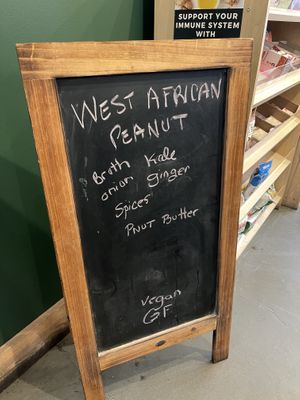 SUPPORT YOUR
IMMUNE SYSTEM
WITH
WEST AFRICAN
PEANUT
Broth Kale
onion ginger
Spices
PNUT Butter
vegan
GF